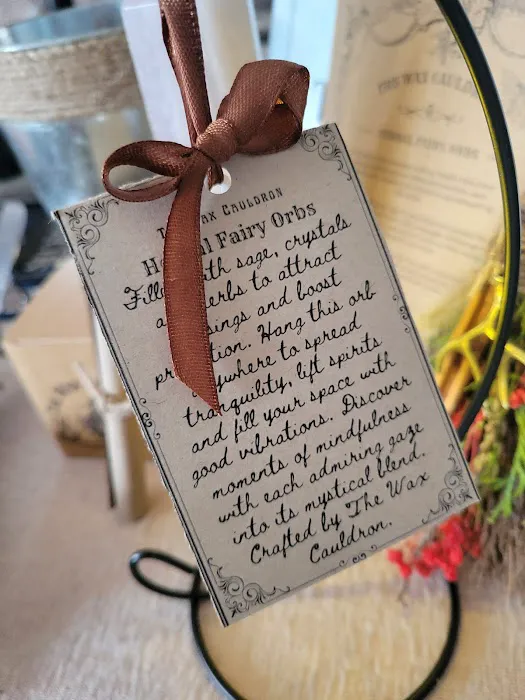 Wax Cauldron
Fairy Orbs
sage, crystals
to attract
and boost
Hang this orb
to spread
tranquility, lift spirits
and fill your space with
good vibrations. Discover
moments of mindfulness
with each admiring gaze
into its mystical blend.
Crafted by The Wax
Cauldron.
THE WAX CAULDRON